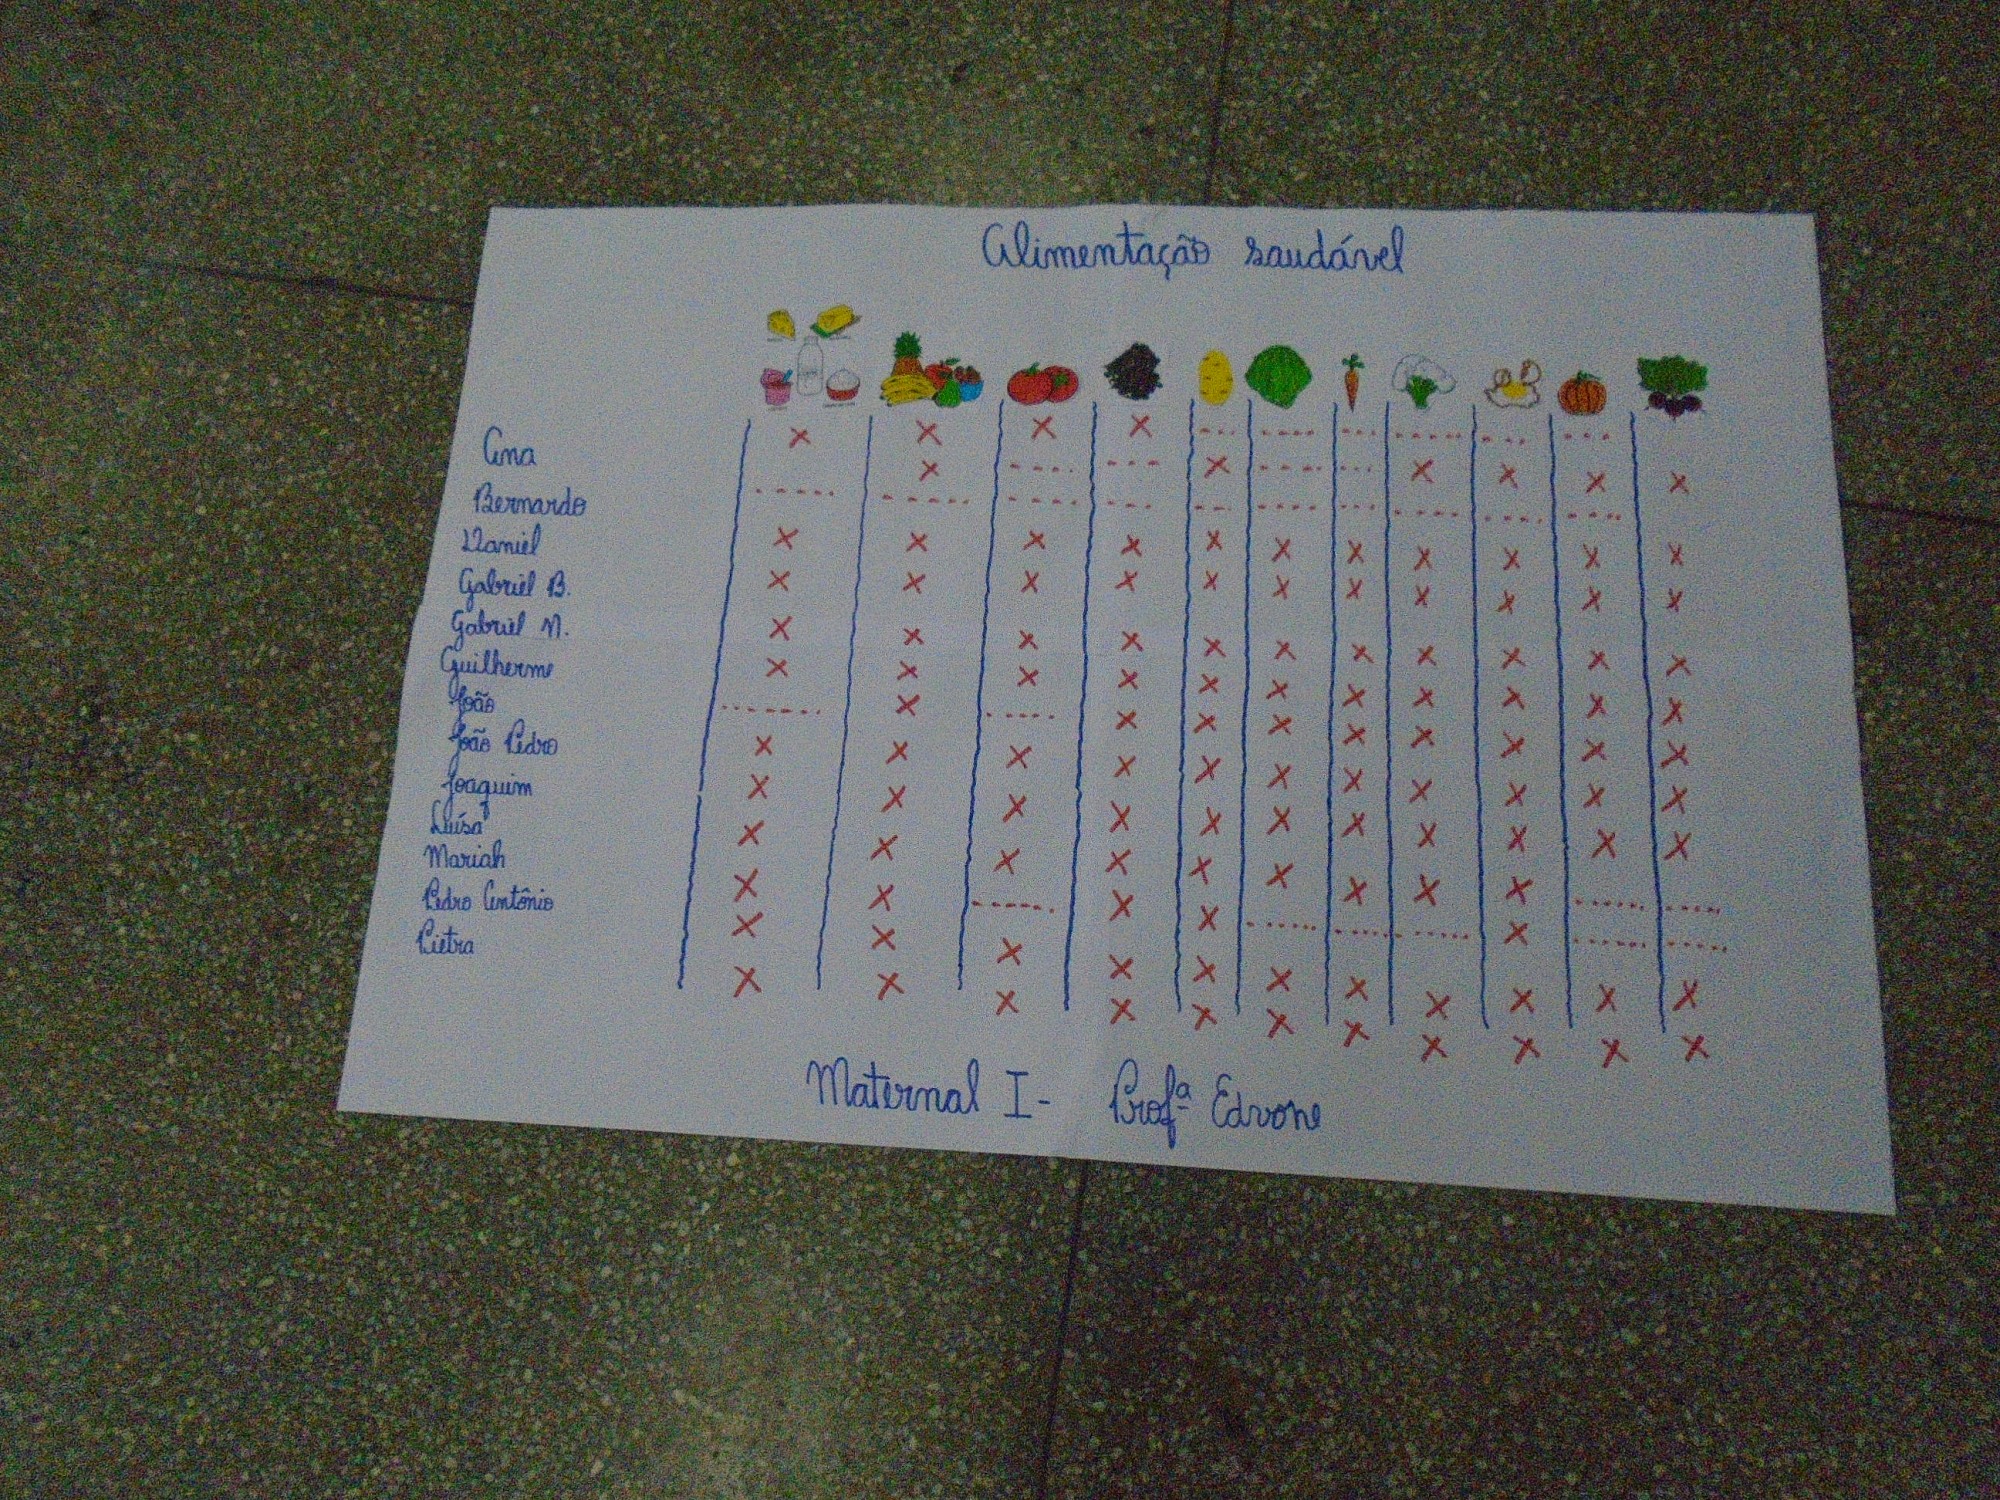 Alimentação saudável
Ana
Bernardo
Daniel
Gabriel B.
Gabriel N.
Guilherme
João
João Pedro
Joaquim
Luísa
Mariah
Pedro Antônio
Pietra
Maternal I - Profª Edvone